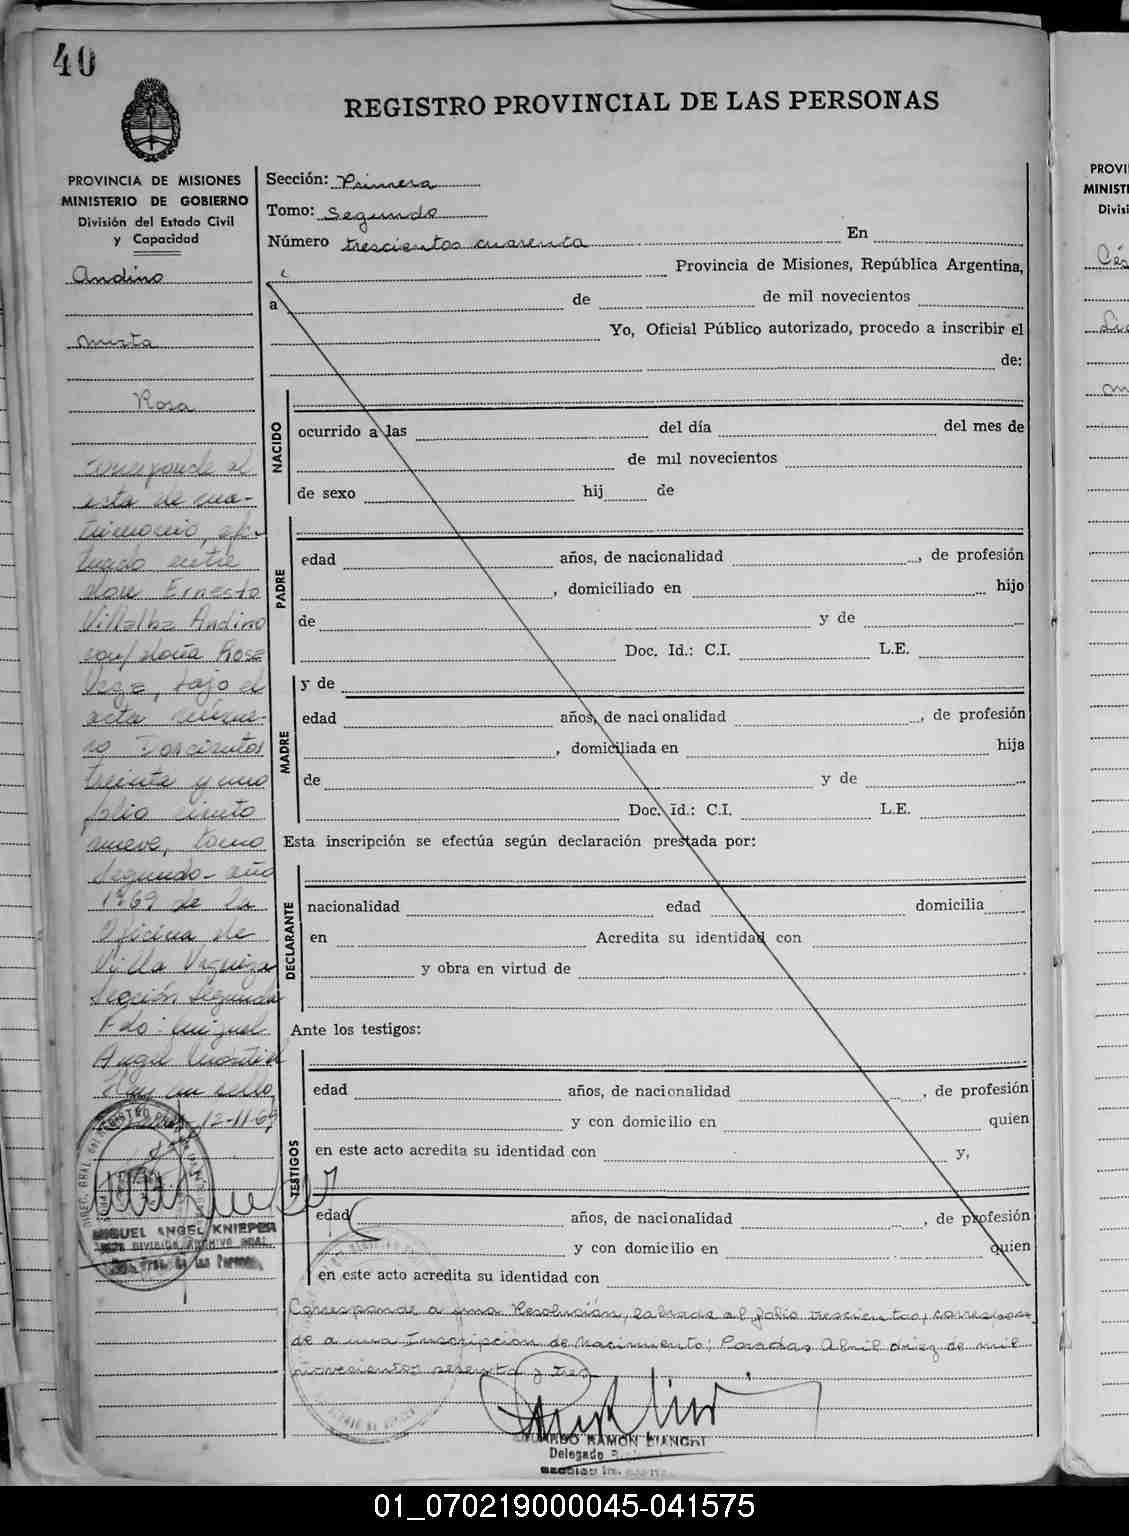 40
REGISTRO PROVINCIAL DE LAS PERSONAS
PROVINCIA DE MISIONES
MINISTERIO DE GOBIERNO
División del Estado Civil
y Capacidad
Andino
mirta
Rosa
Corresponde al
acta de ma-
trimonio, efec-
tuado entre
don Ernesto
Villalba Andino
con/ doña Rosa
Vega, bajo el
acta núme-
ro Doscientos
treinta y uno
folio ciento
nueve, tomo
Segundo - año
1969 de la
Oficina de
Villa Urquiza
Sección Segunda
Fdo: Miguel
Angel
Hay un sello
12-11-69
MIGUEL ANGEL KNIEPER
JEFE DIVISION ARCHIVO GRAL.
Reg. Prov. de las Personas
Sección: Primera
Tomo: Segundo
Número trescientos cuarenta En
Provincia de Misiones, República Argentina,
a de de mil novecientos
Yo, Oficial Público autorizado, procedo a inscribir el
de:
NACIDO
ocurrido a las del día del mes de
de mil novecientos
de sexo hij de
PADRE
edad años, de nacionalidad , de profesión
, domiciliado en hijo
de y de
Doc. Id.: C.I. L.E.
MADRE
y de
edad años, de nacionalidad , de profesión
, domiciliada en hija
de y de
Doc. Id.: C.I. L.E.
Esta inscripción se efectúa según declaración prestada por:
DECLARANTE
nacionalidad edad domicilia
en Acredita su identidad con
y obra en virtud de
Ante los testigos:
TESTIGOS
edad años, de nacionalidad , de profesión
y con domicilio en quien
en este acto acredita su identidad con y,
edad años, de nacionalidad , de profesión
y con domicilio en quien
en este acto acredita su identidad con
Corresponde a una Resolución, labrada al folio trescientos, correspon-
de a una Inscripción de Nacimiento; Posadas Abril diez de mil
novecientos sesenta y tres
EDUARDO RAMON BIANCHI
Delegado
PROVI
MINIST
Divisi
01_070219000045-041575